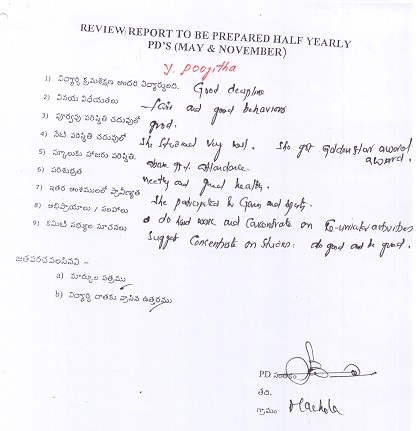 REVIEW REPORT TO BE PREPARED HALF YEARLY
PD'S (MAY & NOVEMBER)
Y. Poojitha
1) విద్యార్థి క్రమశిక్షణ అందరి విద్యార్థులది. Good
2) వినయ విధేయతలు fair and good behaviors
3) పూర్వపు పరిస్థితి చదువులో good.
4) నేటి పరిస్థితి చదువులో She very well. She got Golden star award
award.
5) స్కూలుకు హాజరు పరిస్థితి. above attendance.
6) పరిశుభ్రత and good health.
7) ఇతర అంశములలో ప్రావీణ్యత She participated in Games and
8) అభిప్రాయాలు / సలహాలు do hard work and Concentrate on
9) కమిటీ సభ్యుల సూచనలు Suggest Concentrate on Studies: do good and be good.
జతపరచవలసినవి :-
a) మార్కుల పత్రము
b) విద్యార్థి దాతకు వ్రాసిన ఉత్తరము
PD సంతకం
తేది.
గ్రామం